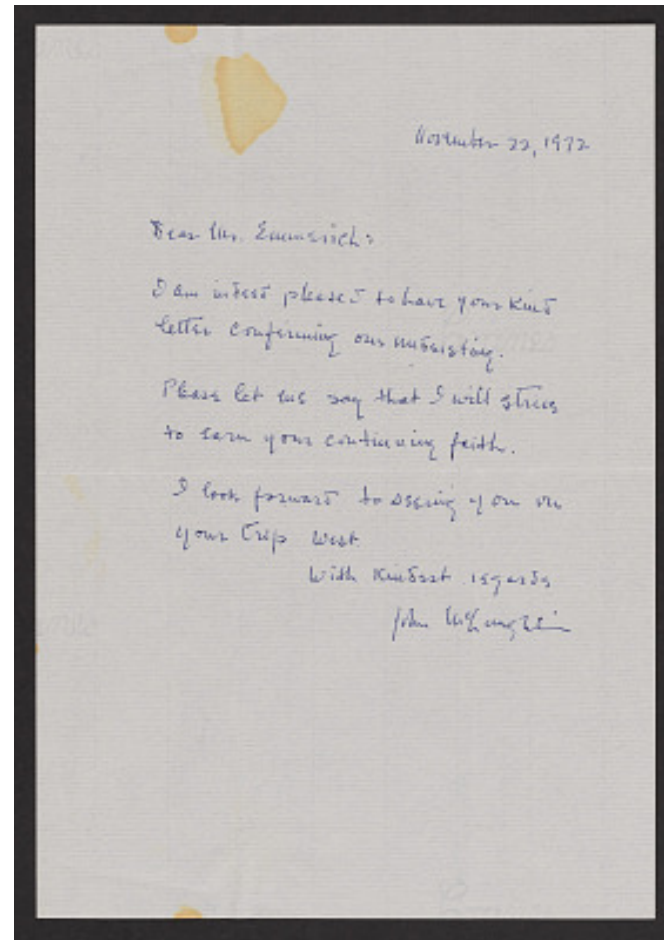 November 22, 1972
Dear Mr. Emmerich:
I am indeed pleased to have your kind
letter confirming our understanding.
Please let me say that I will strive
to earn your continuing faith.
I look forward to seeing you on
your trip west
With kindest regards
John McLaughlin